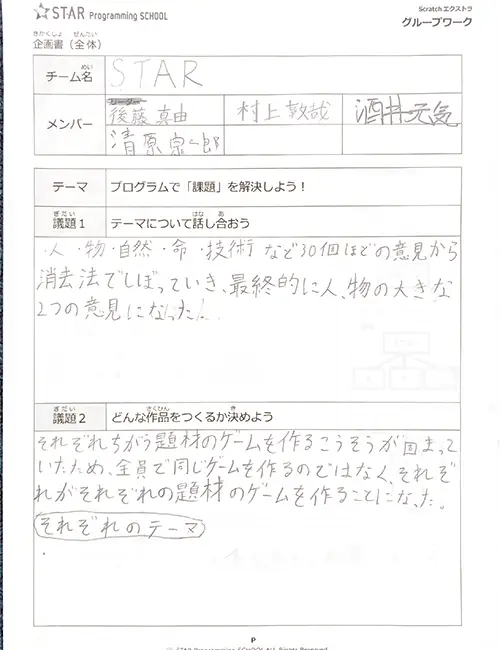 STAR Programming SCHOOL
Scratchエクストラ
グループワーク
きかくしょ ぜんたい
企画書（全体）
チーム名 STAR
めい
メンバー
リーダー
後藤真由 村上敦哉 酒井元気
清原宗一郎
テーマ プログラムで「課題」を解決しよう！
ぎだい はな あ
議題1 テーマについて話し合おう
・人・物・自然・命・技術など30個ほどの意見から
消去法でしぼっていき、最終的に人、物の大きな
2つの意見になった。
ぎだい さくひん き
議題2 どんな作品をつくるか決めよう
それぞれちがう題材のゲームを作るこうそうが固まって
いたため、全員で同じゲームを作るのではなく、それぞ
れがそれぞれの題材のゲームを作ることになった。
それぞれのテーマ
P
STAR Programming SCHOOL ALL Rights Reserved